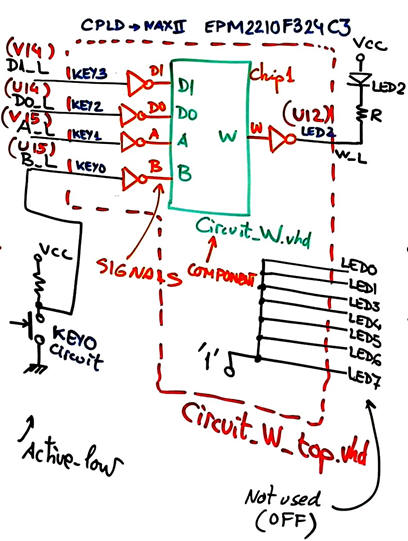 CPLD → MAX II EPM2210F324C3
(V14)
D1_L KEY3 D1
(U14)
D0_L KEY2 D0
(V15)
A_L KEY1 A
(U15)
B_L KEY0 B
Chip1
D1
D0
A
B
W W (U12) LED2
W_L
VCC
LED2
R
Circuit_W.vhd
SIGNALS
COMPONENT
VCC
KEY0
Circuit
Active-low
LED0
LED1
LED3
LED4
LED5
LED6
LED7
'1'
Circuit_W_top.vhd
Not used
(OFF)